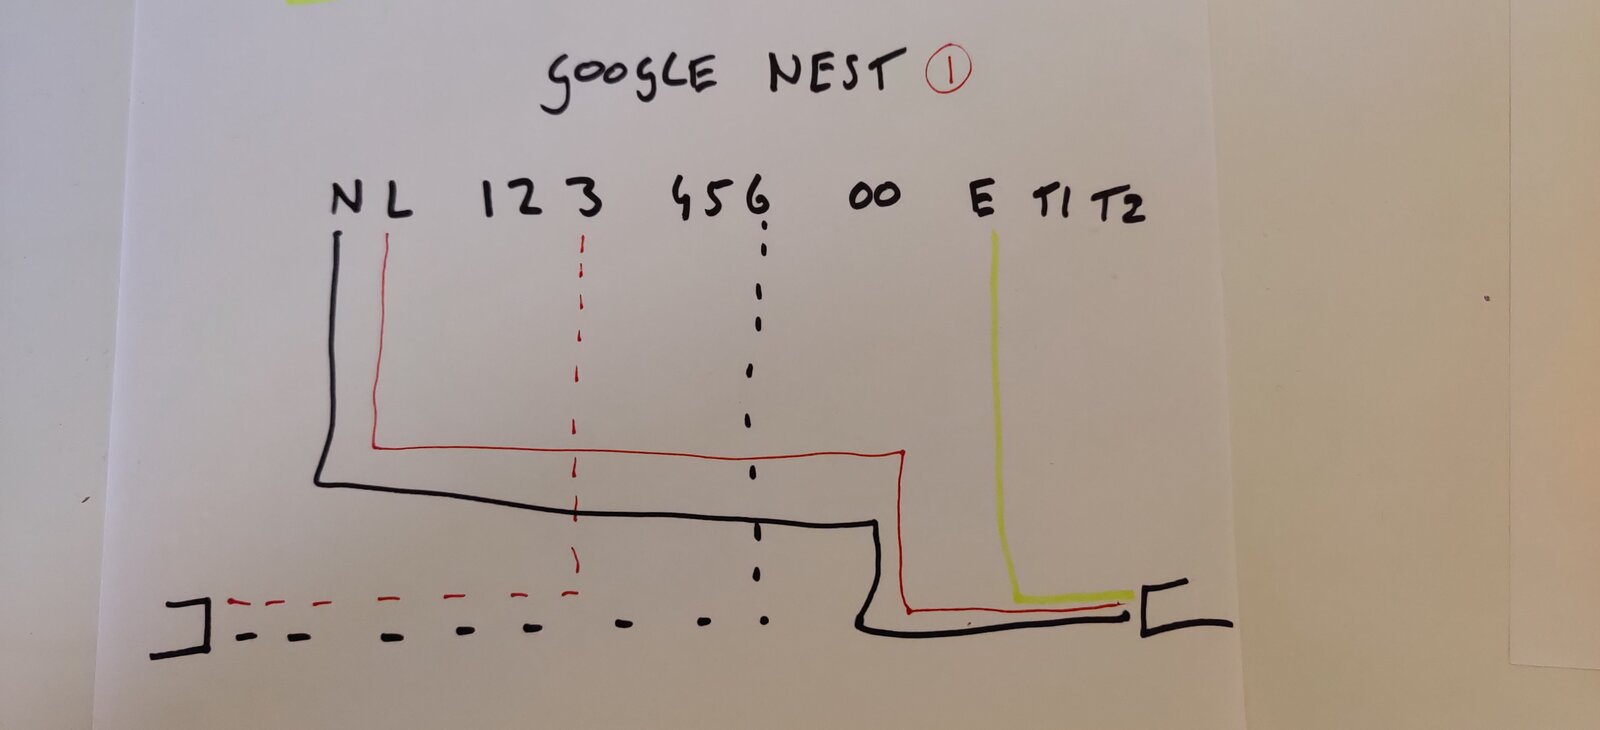 GOOGLE NEST 1
N L 1 2 3 4 5 6 00 E T1 T2